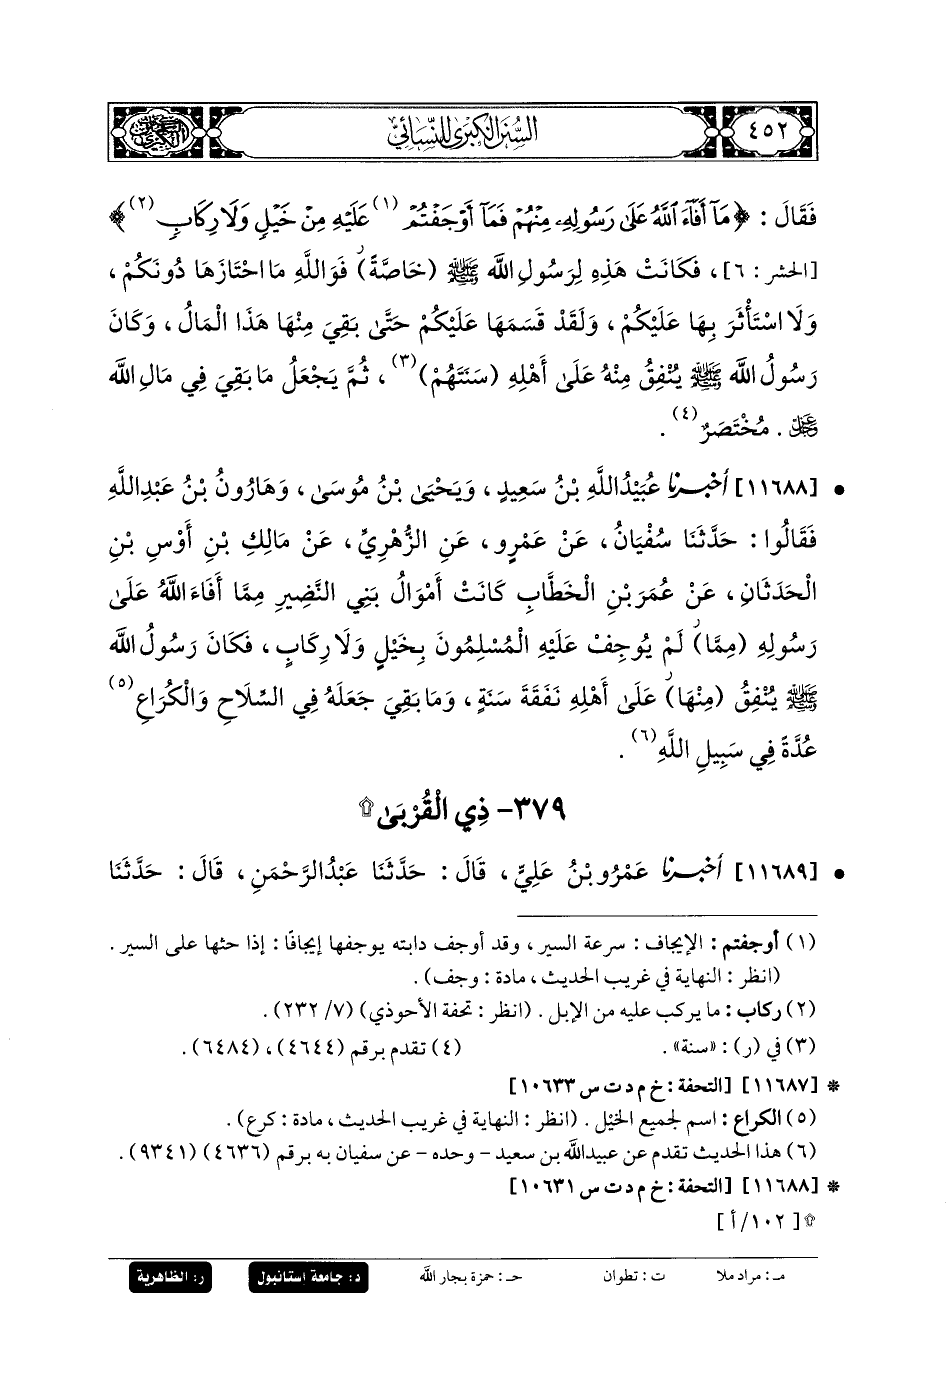 ٤٥٢
السُّنَنُ الكبرىٰ للنسائي
فَقَالَ : ﴿ مَآ أَفَآءَ ٱللَّهُ عَلَىٰ رَسُولِهِۦ مِنْهُمْ فَمَآ أَوْجَفْتُمْ (١) عَلَيْهِ مِنْ خَيْلٍ وَلَا رِكَابٍ (٢) ﴾
[الحشر : ٦] ، فَكَانَتْ هَذِهِ لِرَسُولِ اللَّه ﷺ (خَاصَّةً) فَوَاللَّهِ مَا احْتَازَهَا دُونَكُمْ ،
وَلَا اسْتَأْثَرَ بِهَا عَلَيْكُمْ ، وَلَقَدْ قَسَمَهَا عَلَيْكُمْ حَتَّىٰ بَقِيَ مِنْهَا هَذَا الْمَالُ ، وَكَانَ
رَسُولُ اللَّه ﷺ يُنْفِقُ مِنْهُ عَلَىٰ أَهْلِهِ (سَنَتَهُمْ) (٣) ، ثُمَّ يَجْعَلُ مَا بَقِيَ فِي مَالِ اللَّه
عَزَّ وَجَلَّ . مُخْتَصَرٌ (٤) .
• [١١٦٨٨] أخبرنا عُبَيْدُاللَّهِ بْنُ سَعِيدٍ ، وَيَحْيَىٰ بْنُ مُوسَىٰ ، وَهَارُونُ بْنُ عَبْدِاللَّهِ
فَقَالُوا : حَدَّثَنَا سُفْيَانُ ، عَنْ عَمْرٍو ، عَنِ الزُّهْرِيِّ ، عَنْ مَالِكِ بْنِ أَوْسِ بْنِ
الْحَدَثَانِ ، عَنْ عُمَرَ بْنِ الْخَطَّابِ كَانَتْ أَمْوَالُ بَنِي النَّضِيرِ مِمَّا أَفَاءَ اللَّهُ عَلَىٰ
رَسُولِهِ (مِمَّا) لَمْ يُوجِفْ عَلَيْهِ الْمُسْلِمُونَ بِخَيْلٍ وَلَا رِكَابٍ ، فَكَانَ رَسُولُ اللَّه
ﷺ يُنْفِقُ (مِنْهَا) عَلَىٰ أَهْلِهِ نَفَقَةَ سَنَةٍ ، وَمَا بَقِيَ جَعَلَهُ فِي السِّلَاحِ وَالْكُرَاعِ (٥)
عُدَّةً فِي سَبِيلِ اللَّهِ (٦) .
٣٧٩- ذِي الْقُرْبَىٰ ۩
• [١١٦٨٩] أخبرنا عَمْرُو بْنُ عَلِيٍّ ، قَالَ : حَدَّثَنَا عَبْدُالرَّحْمَنِ ، قَالَ : حَدَّثَنَا
(١) أوجفتم : الإيجاف : سرعة السير ، وقد أوجف دابته يوجفها إيجافًا : إذا حثها على السير .
(انظر : النهاية في غريب الحديث ، مادة : وجف) .
(٢) ركاب : ما يركب عليه من الإبل . (انظر : تحفة الأحوذي) (٧/ ٢٣٢) .
(٣) في (ر) : «سنة» . (٤) تقدم برقم (٤٦٤٤) ، (٦٤٨٤) .
* [١١٦٨٧] [التحفة : خ م د ت س ١٠٦٣٣]
(٥) الكراع : اسم لجميع الخيل . (انظر : النهاية في غريب الحديث ، مادة : كرع) .
(٦) هذا الحديث تقدم عن عبيدالله بن سعيد - وحده - عن سفيان به برقم (٤٦٣٦) (٩٣٤١) .
* [١١٦٨٨] [التحفة : خ م د ت س ١٠٦٣١]
۩ [١٠٢/أ]
مـ : مراد ملا ت : تطوان حـ : حمزة بجار الله د : جامعة إستانبول ر : الظاهرية